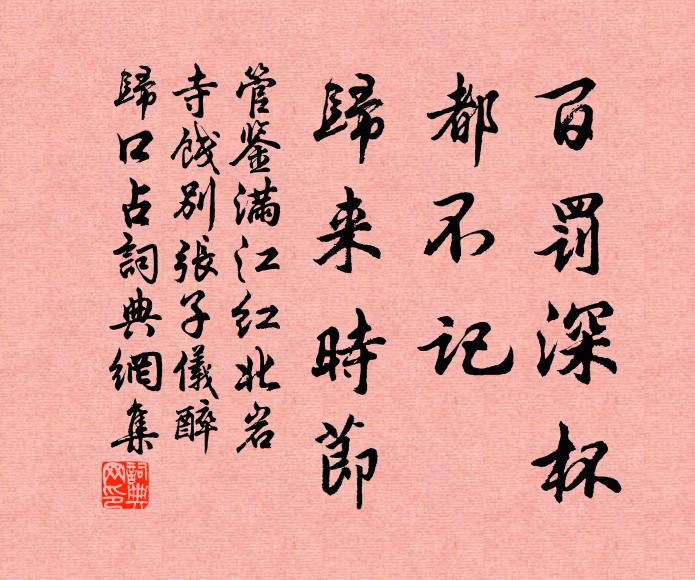 百罰深杯
都不记
歸来時節
管鉴满江红北岩
寺餞别張子儀醉
歸口占詞典網集
詞典网印